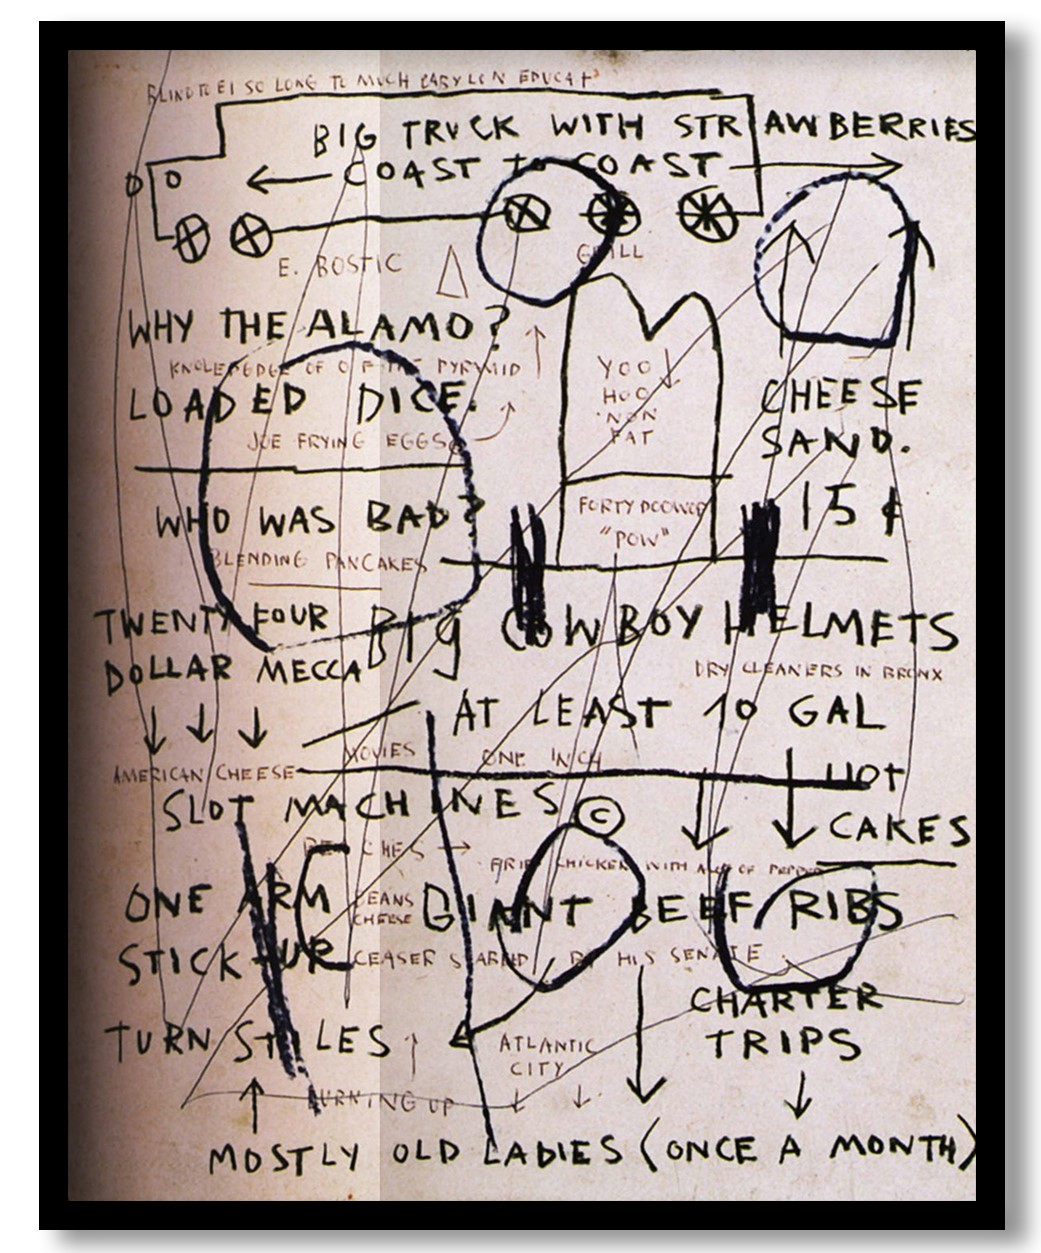 BLIND SO LONG MUCH BABYLON EDUCAT
BIG TRUCK WITH STRAWBERRIES
COAST TO COAST
E. BOSTIC
WHY THE ALAMO?
KNOLEDEDGE OF OF THE PYRYMID
LOADED DICE.
JOE FRYING EGGS
WHO WAS BAD?
BLENDING PANCAKES
YOO
HOO
NON
FAT
FORTY
"POW"
CHEESE
SAND.
15¢
TWENTY FOUR
DOLLAR MECCA
BIG COWBOY HELMETS
DRY CLEANERS IN BRONX
AT LEAST 10 GAL
MOVIES
ONE INCH
AMERICAN CHEESE
HOT
CAKES
SLOT MACHINES ©
CHICKEN WITH OF
ONE ARM
STICK UP
BEANS
CHEESE
GIANT BEEF RIBS
CEASER BY HIS SENATE
CHARTER
TRIPS
TURN STILES
ATLANTIC
CITY
BURNING UP
MOSTLY OLD LADIES (ONCE A MONTH)